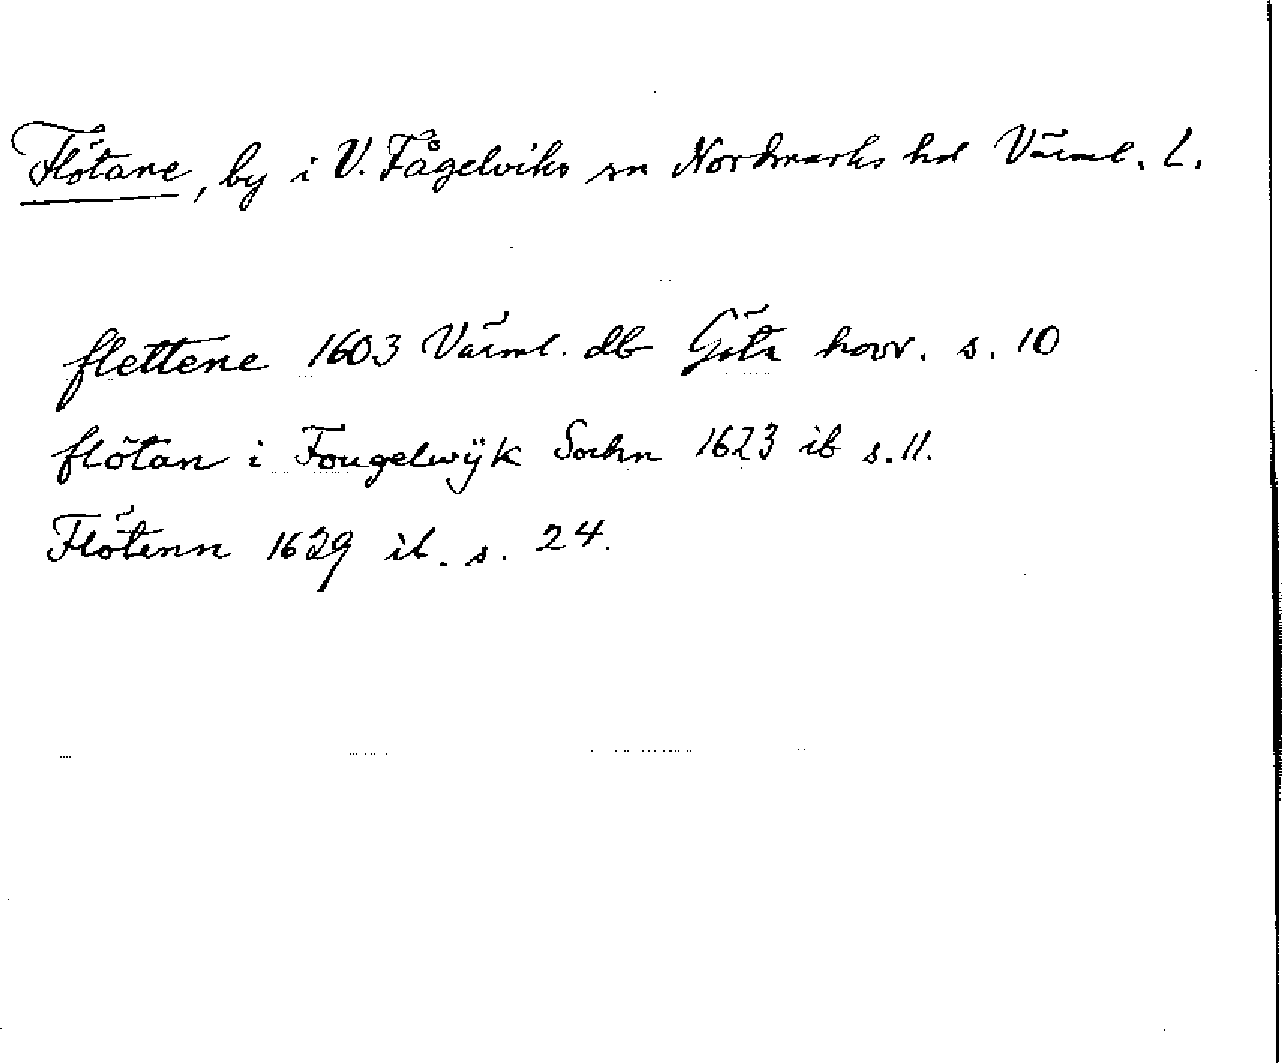 Flötane, by i V. Fågelviks sn Nordmarks hd Värml. L.
flettene 1603 Värml. db Göta hovr. s. 10
flötan i Fougelwÿk Sochn 1623 ib s. 11.
Flötenn 1629 ib. s. 24.